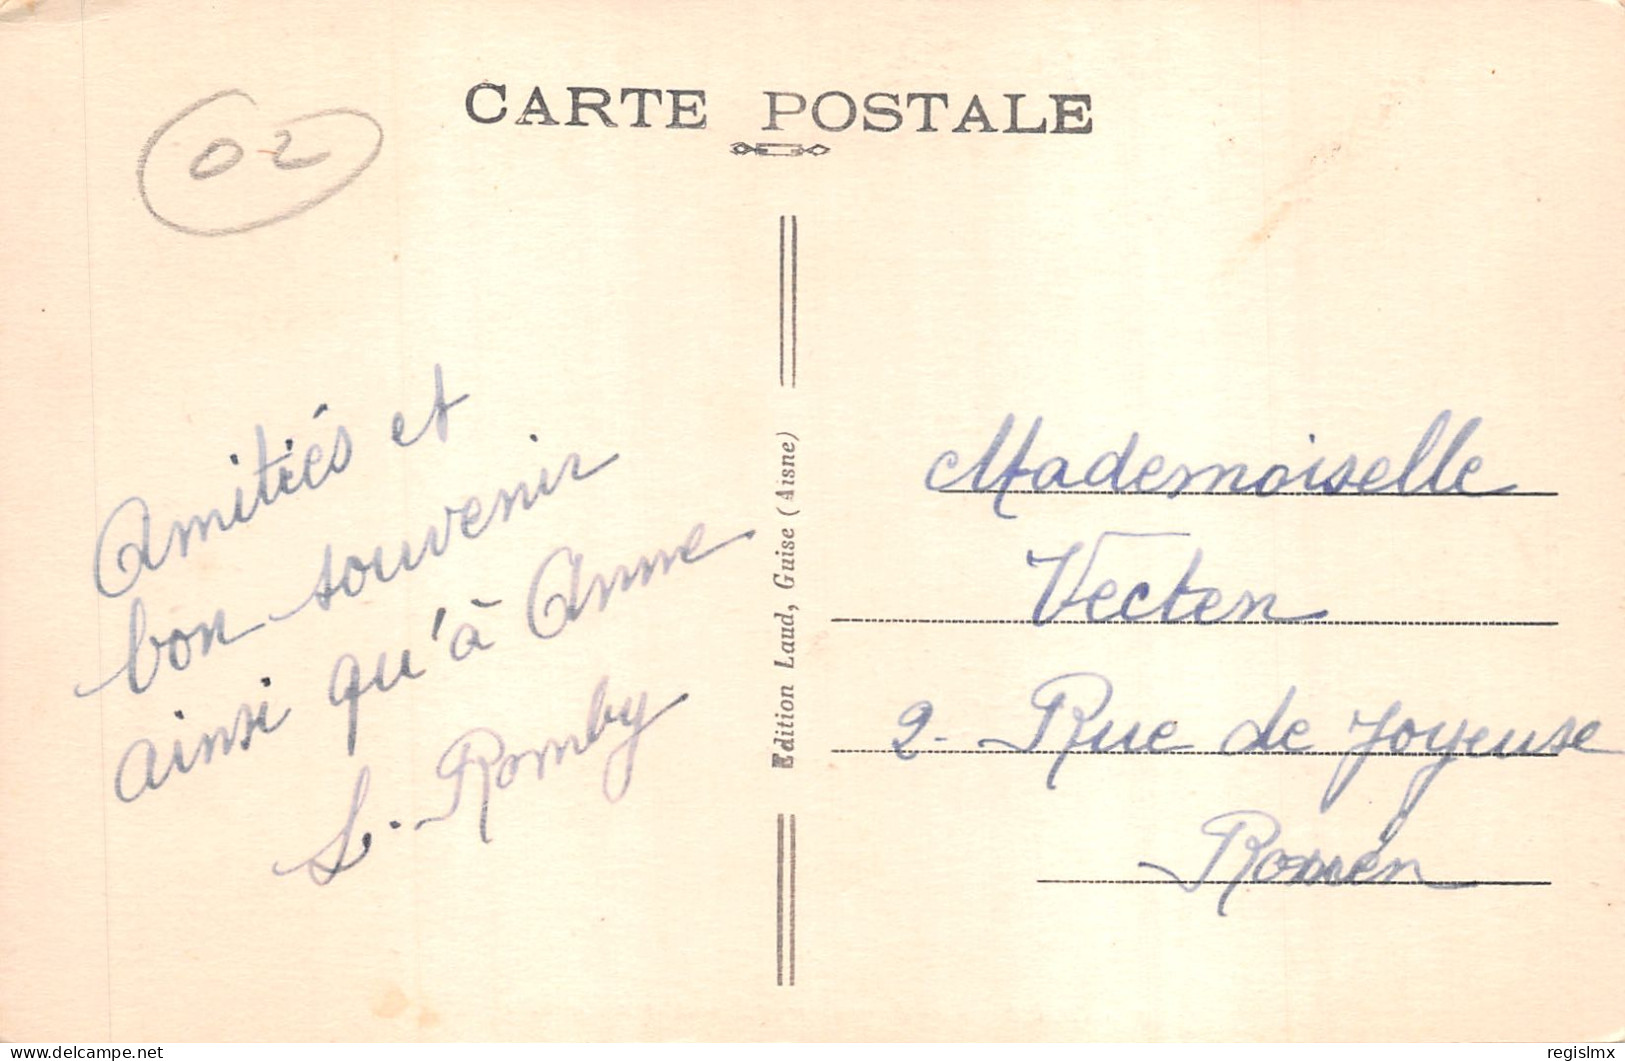 CARTE POSTALE
02
Amitiés et
bon souvenir
ainsi qu'à Anne
L. Romby
Edition Laud, Guise (Aisne)
Mademoiselle
Vecten
2 - Rue de Joyeuse
delcampe.net
regislmx